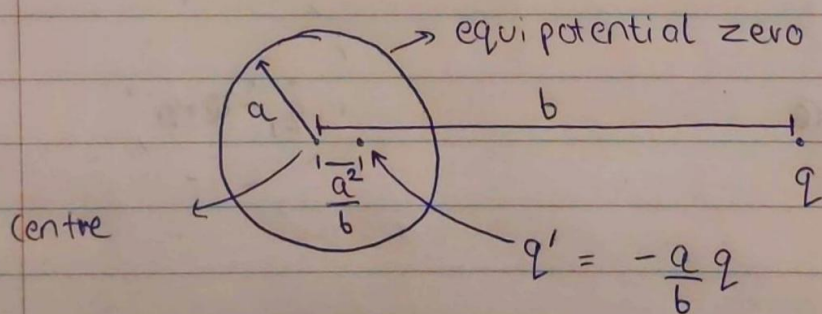 equipotential zero
a
b
a²
b
q
Centre
q' = - a/b q